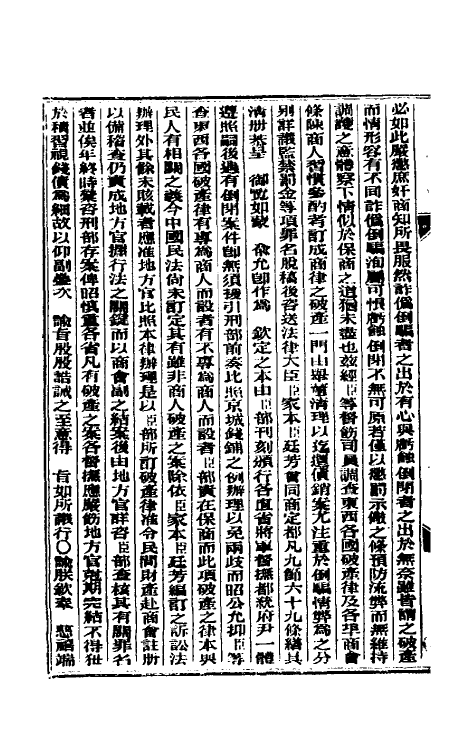 必如此嚴懲庶奸商知所畏服然詐僞倒騙者之出於有心與虧蝕倒閉者之出於無奈雖皆謂之破產
而情形容有不同詐僞倒騙洵屬可恨虧蝕倒閉不無可原若僅以懲罰示儆之條預防流弊而無維持
調護之意體察下情似於保商之道猶未盡也茲經臣等督飭司員調查東西各國破產律及各埠商會
條陳商人習慣參酌者訂成商律之破產一門由舉董清理以迄還債銷案尤注重於倒騙情弊爲之分
別詳議監禁罰金等項罪名脫稿後咨送法律大臣臣家本臣廷芳會同商定都凡九節六十九條繕具
清册恭呈 御覽如蒙 兪允卽作爲 欽定之本由臣部刊刻頒行各直省將軍督撫都統府尹一體
遵照嗣後遇有倒閉案件卽無須援引刑部前奏比照京城錢鋪之例辦理以免兩歧而昭公允抑臣等
查東西各國破產律有專爲商人而設者有不專爲商人而設者臣部責在保商而此項破產之律本與
民人有相關之義今中國民法尚未訂定其有雖非商人破產之案除依臣家本臣廷芳編訂之訴訟法
辦理外其餘未賅載者應准地方官比照本律辦理是以臣部所訂破產律准令民間財產赴商會註册
以備稽查仍責成地方官握行法之關鍵而以商會副之結案後由地方官詳咨臣部查核其有關罪名
者並俟年終時彙咨刑部存案俾昭慎重各省凡有破產之案各督撫應嚴飭地方官尅期完結不得狃
於積習視錢債爲細故以仰副疊次 諭旨殷殷誥誡之至意得 旨如所議行〇諭朕欽奉 慈禧端